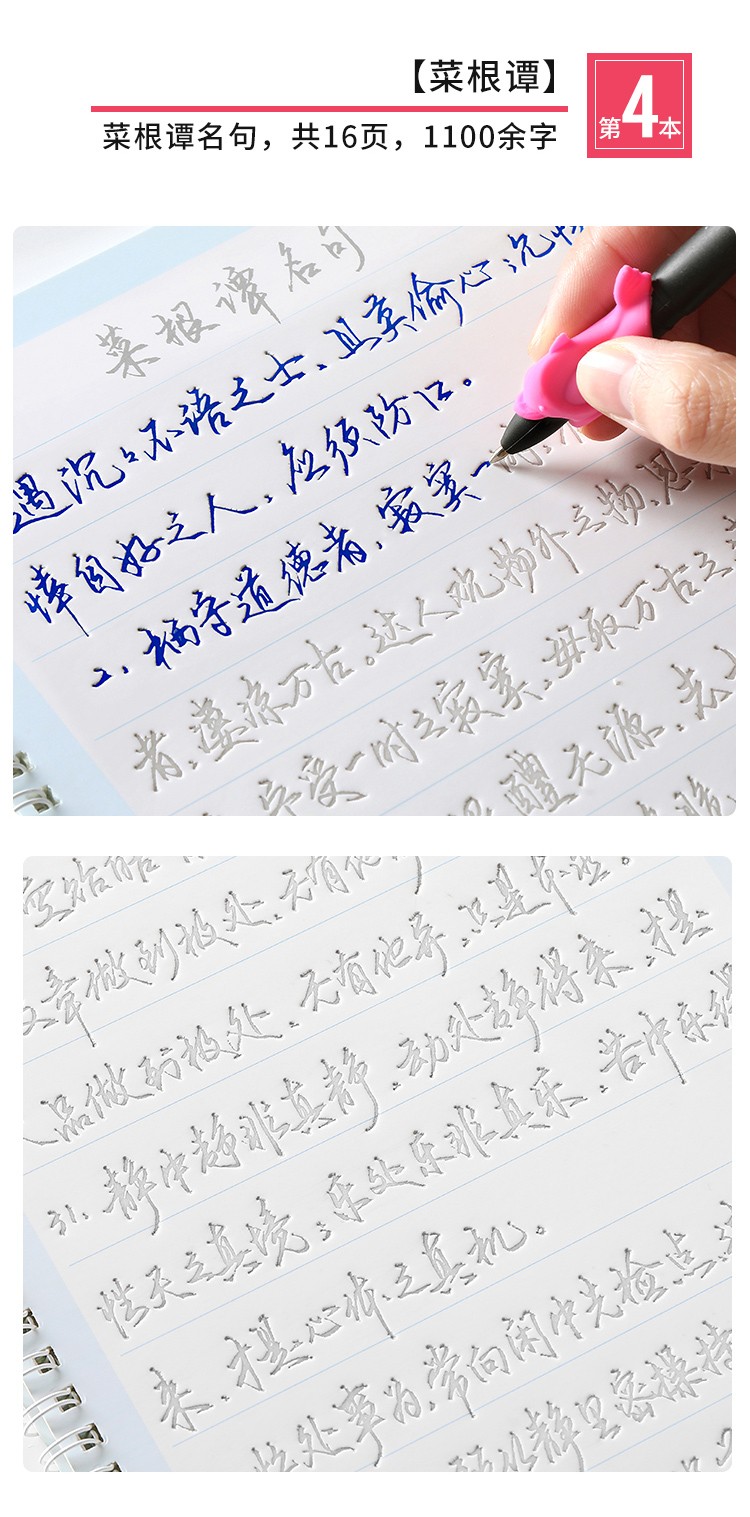 【菜根谭】
菜根谭名句，共16页，1100余字
第4本
菜根谭名句
遇沉々不语之士、且莫偷心；
悻自好之人，应须防口。
2、栖守道德者，寂寞一
者，凄凉万古。达人观物外之物，思
宁受一时之寂寞，毋取万古之
醴无源，去
文章做到极处，无有他
品做到极处，无有他异，只是本然。
31、静中静非真静，动处静得来，才是
性天之真境；乐处乐非真乐，苦中乐得
来，才是心体之真机。
处事为，常向闲中先检点，
静里密操持